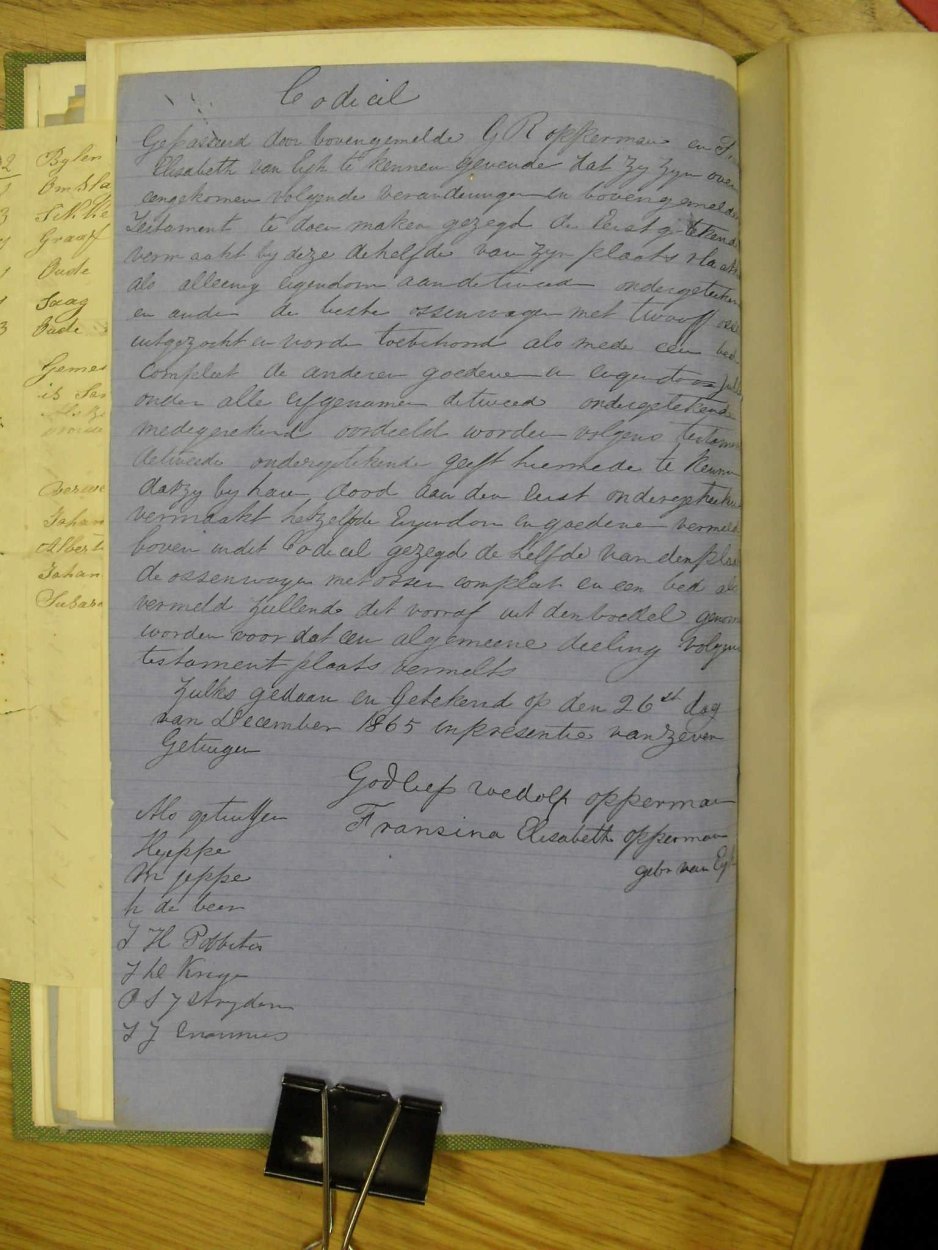 Codicil
Gepasseerd door bovengemelde G R opperman en F.
Elisabeth van Eyk te kennen gevende dat zy zyn over
eengekomen volgende veranderingen in bovengemelde
Testament te doen maken gezegd de Eerst getekende
vermaakt by deze de helfde van zyn plaats
als alleenig eigendom aan de tweede ondergeteken
en ander de beste ossenwagen met twaalf osse
uitgezocht en worde toebehond als mede een bed
Compleet de anderen goederen en eigendom
onder alle erfgenamen de tweede ondergetekende
medegerekend verdeeld worden volgens testamen
de tweede ondergetekende geeft hiermede te kenne
dat zy by haar dood aan den Eerst ondergetekende
vermaakt hetzelfde Eigendom en goederen vermeld
boven in dit Codicil gezegd de helfde van den plaa
de ossenwagen met ossen compleet en een bed als
vermeld Zullende dit vooraf uit den boedel genom
worden voor dat een algemeene deeling volgens
testament plaats vermelts
Zulks gedaan en Getekend op den 26st dag
van December 1865 in presentie van Zeven
Getuigen
Godlief Redolf opperman
Fransina Elisabeth opperman
gebr van Eyk
Als getuigen
H jeppe
Vn jeppe
h de beer
J H Potgieter
J H Kruger
P S J Strydom
J J
02
Bylen
Graaff
Oude
Saag
3
Oude
Gemes
is San
Johan
Albert
Johan
Susann